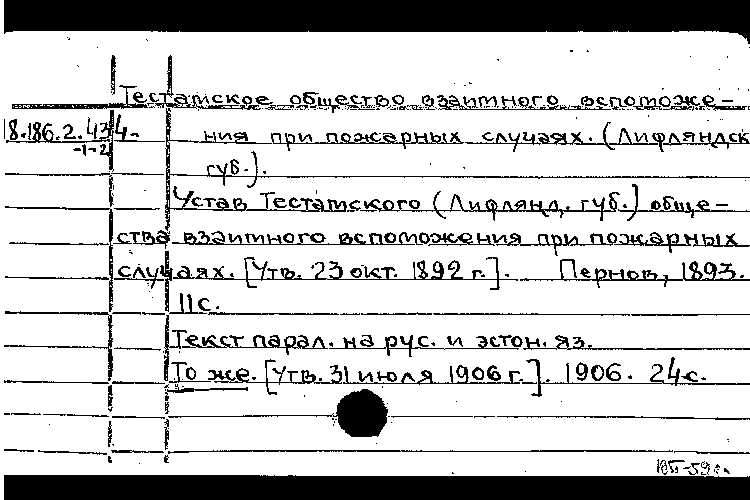 Тестамское общество взаимного вспоможе-
18.186.2.434- ния при пожарных случаях. (Лифляндск
-1-2
губ.).
Устав Тестамского (Лифлянд. губ.) обще-
ства взаимного вспоможения при пожарных
случаях. [Утв. 23 окт. 1892 г.]. Пернов, 1893.
11с.
Текст парал. на рус. и эстон. яз.
То же. [Утв. 31 июля 1906 г.]. 1906. 24с.